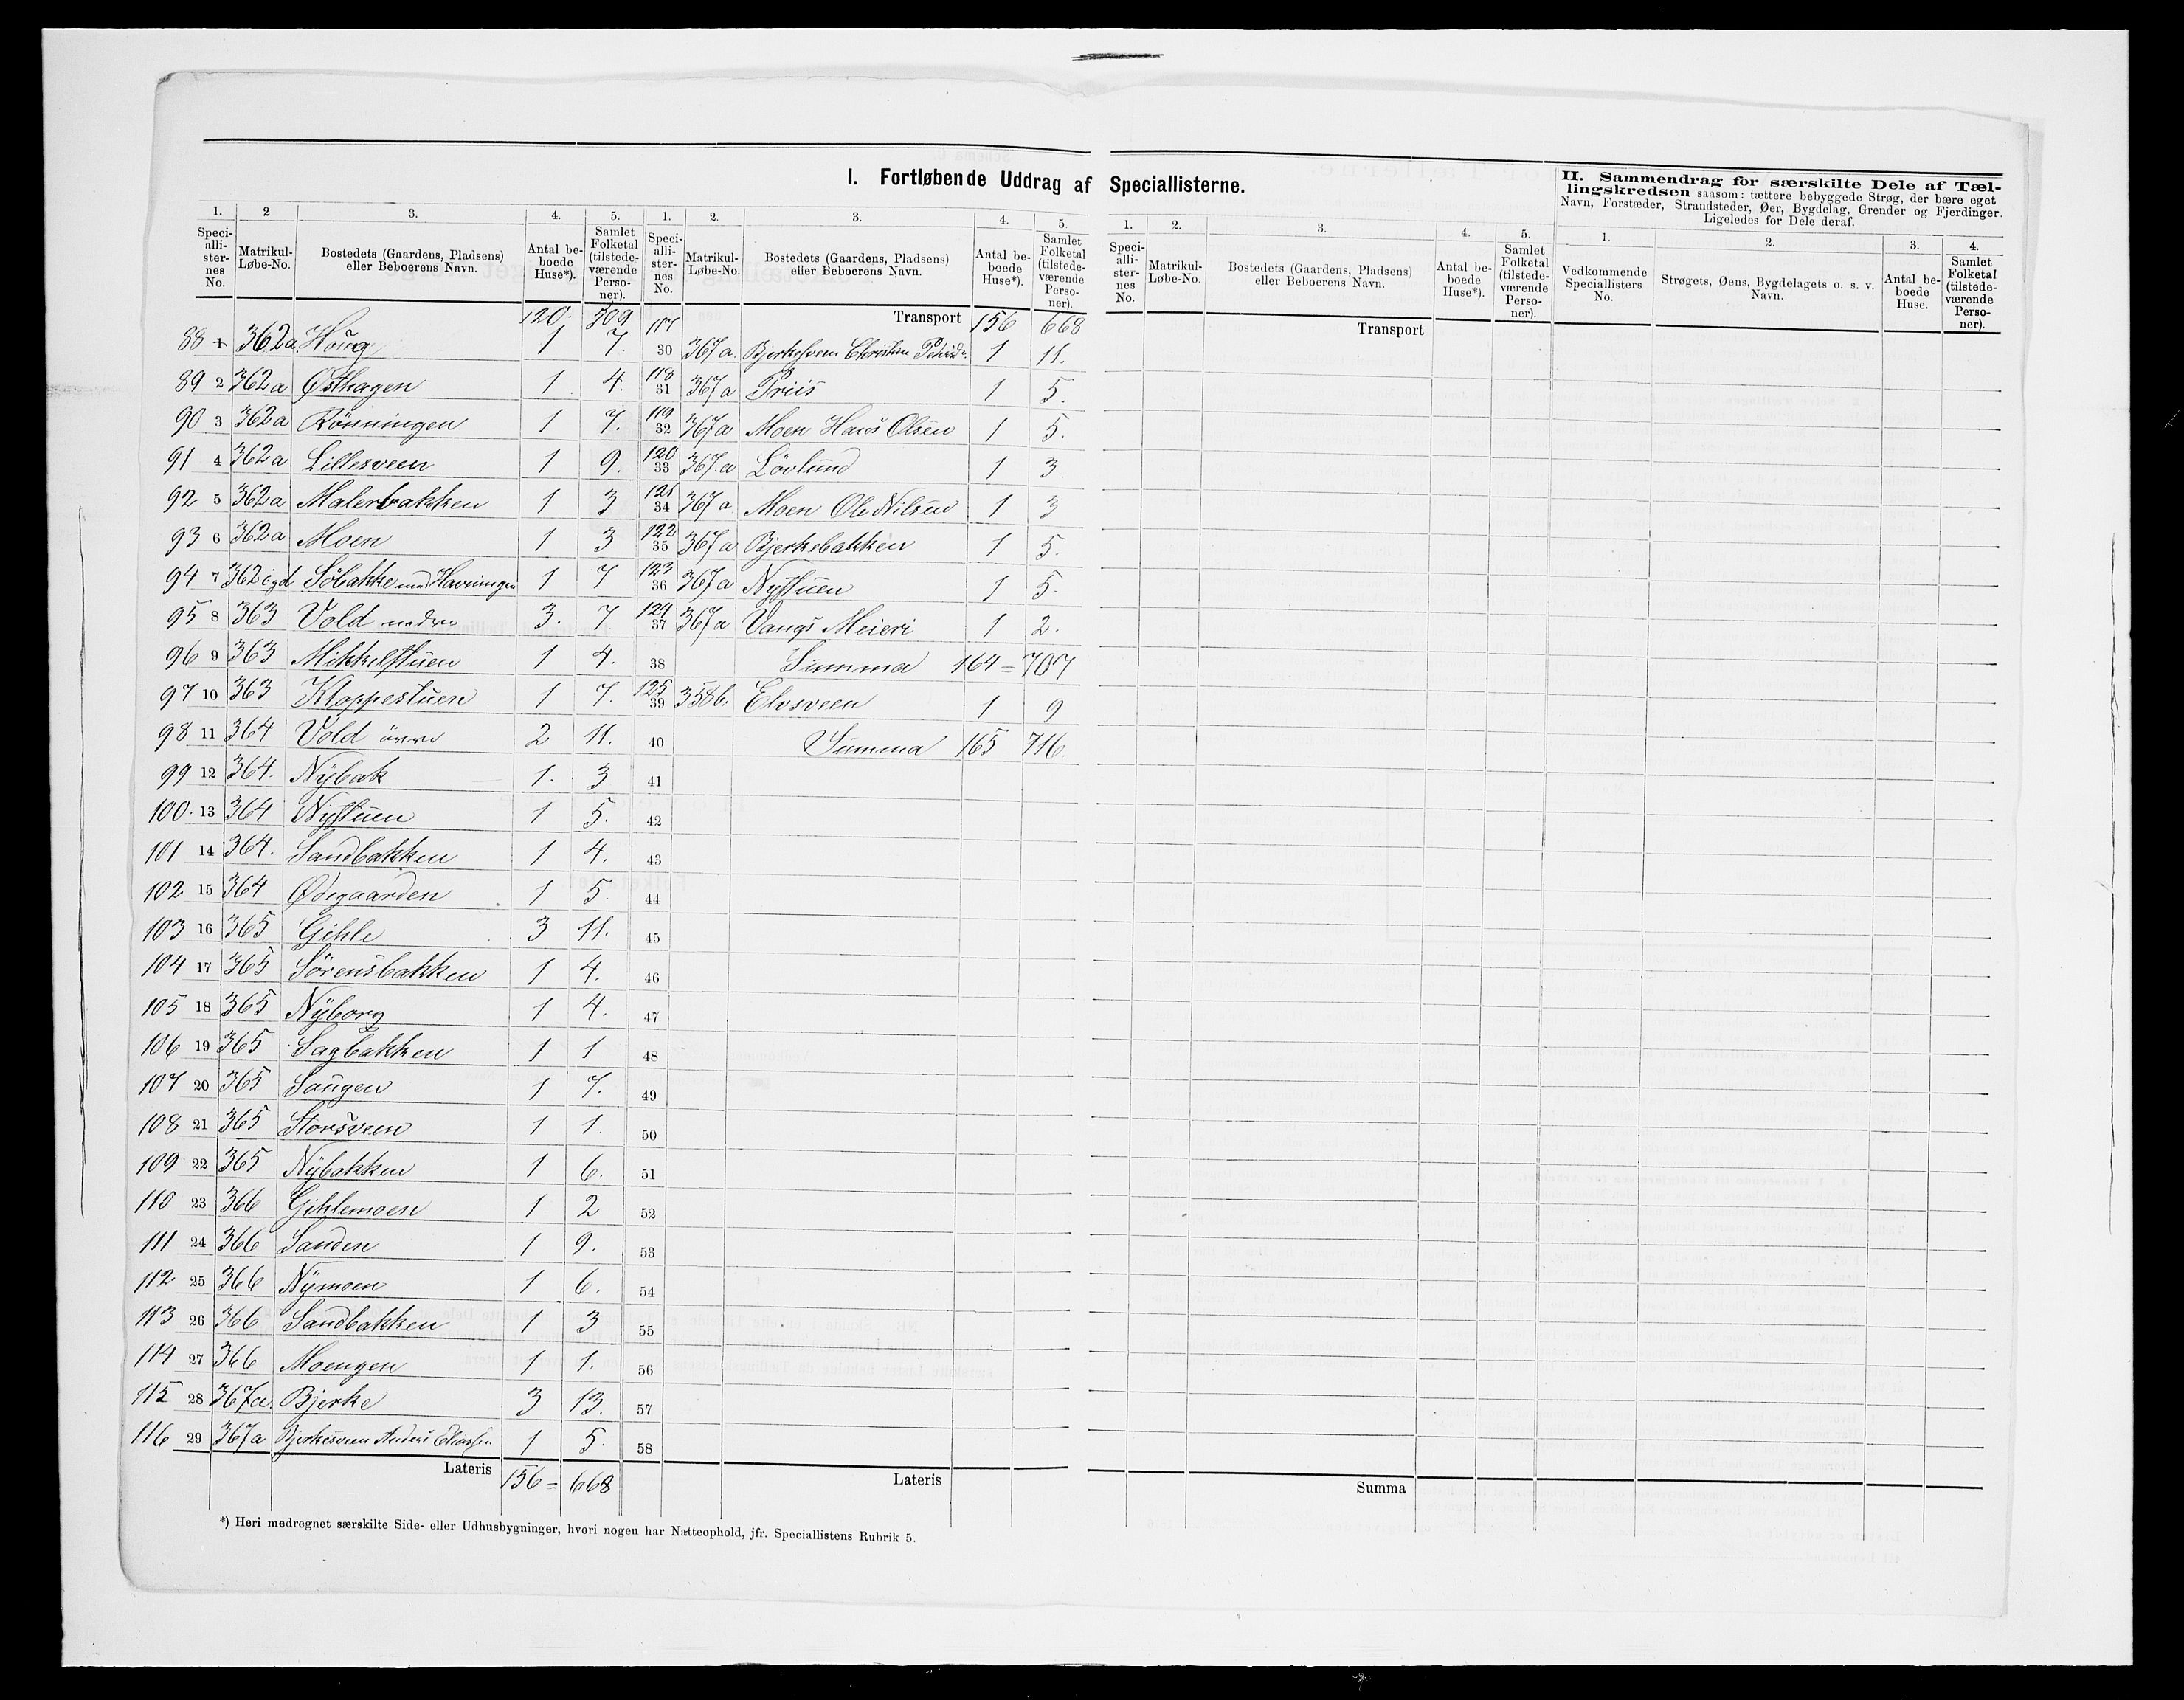 I. Fortløbende Uddrag af Speciallisterne.
1. 2 3. 4. 5.
Speciallisternes No. Matrikul-Løbe-No. Bostedets (Gaardens, Pladsens) eller Beboerens Navn. Antal beboede Huse*). Samlet Folketal (tilstedeværende Personer).
120 509
88 1 362a Houg 1 7.
89 2 362a Østhagen 1 4.
90 3 362a Rönningen 1 7.
91 4 362a Lillesveen 1 9.
92 5 362a Malerbakken 1 3
93 6 362a Moen 1 3
94 7 362 Söbakke med 1 7
95 8 363 Vold nedre 3. 7
96 9 363 Mikkelstuen 1 4.
97 10 363 Kloppestuen 1 7.
98 11 364 Vold övre 2 11.
99 12 364. Nÿbak 1. 3
100. 13 364 Nÿstuen 1 5.
101 14 364. Sandbakken 1 4.
102 15 364 Ødegaarden 1 5
103 16 365 Gihle 3 11.
104 17 365 Sörensbakken 1 4.
105 18 365 Nÿborg 1 4.
106 19 365 Sagbakken 1 1
107 20 365 Saugen 1 7.
108 21 365 Storsveen 1 1.
109 22 365 Nÿbakken 1 6.
110 23 366 Gihlemoen 1 2
111 24 366 Sanden 1 9.
112 25 366 Nÿmoen 1 6.
113 26 366 Sandbakken 1 3
114 27 366 Moengen 1 1.
115 28 367a. Bjerke 3 13.
116 29 367a Bjerkesveen Anders 1 5.
Lateris 156 = 668
1. 2. 3. 4. 5.
Speciallisternes No. Matrikul-Løbe-No. Bostedets (Gaardens, Pladsens) eller Beboerens Navn. Antal beboede Huse*). Samlet Folketal (tilstedeværende Personer).
Transport 156 668
117 30 367a. Bjerkesveen Christian 1 11.
118 31 367a Priis 1 5.
119 32 367a Moen Hans Olsen 1 5.
120 33 367.a Lövlund 1 3
121 34 367a Moen Ole Nilsen 1 3
122 35 367a Bjerkebakken 1 5.
123 36 367a Nystuen 1 5.
124 37 367a Vangs Meieri 1 2.
38 Summa 164 = 707
125 39 358b. Elvsveen 1 9
40 Summa 165 716.
41
42
43
44
45
46
47
48
49
50
51
52
53
54
55
56
57
58
Lateris
1. 2. 3. 4. 5.
Speciallisternes No. Matrikul-Løbe-No. Bostedets (Gaardens, Pladsens) eller Beboerens Navn. Antal beboede Huse*). Samlet Folketal (tilstedeværende Personer).
Transport
Summa
II. Sammendrag for særskilte Dele af Tæl-
lingskredsen saasom: tættere bebyggede Strøg, der bære eget
Navn, Forstæder, Strandsteder, Øer, Bygdelag, Grender og Fjerdinger.
Ligeledes for Dele deraf.
1. 2. 3. 4.
Vedkommende Speciallisters No. Strøgets, Øens, Bygdelagets o. s. v. Navn. Antal beboede Huse. Samlet Folketal (tilstedeværende Personer).
*) Heri medregnet særskilte Side- eller Udhusbygninger, hvori nogen har Natteophold, jfr. Speciallistens Rubrik 5.